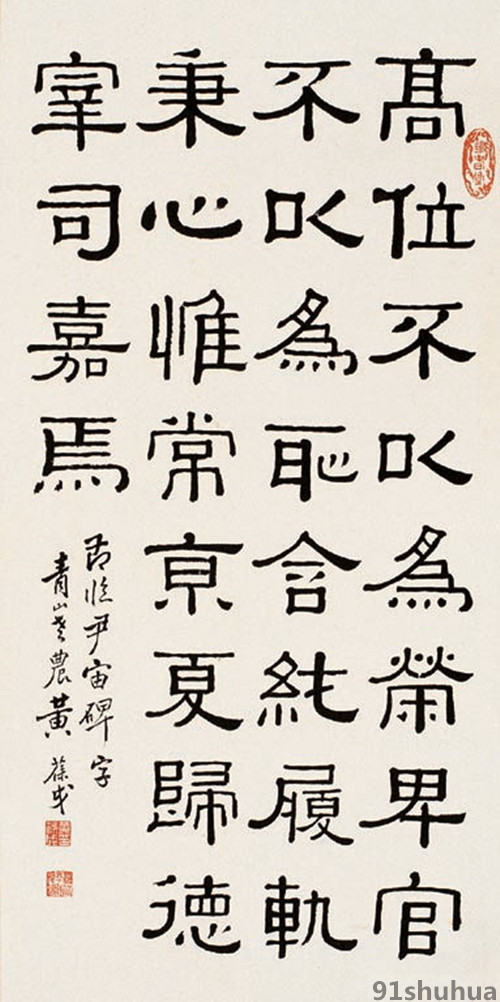 髙位不以為榮卑官
不以為恥含純履軌
秉心惟常亰夏歸徳
宰司嘉焉
節臨尹宙碑字
青山老農黃葆戉
91shuhua